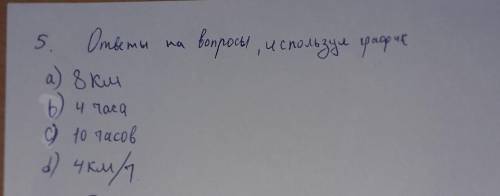 5. Ответы на вопросы, используя график
a) 8 км
b) 4 часа
c) 10 часов
d) 4 км/ч